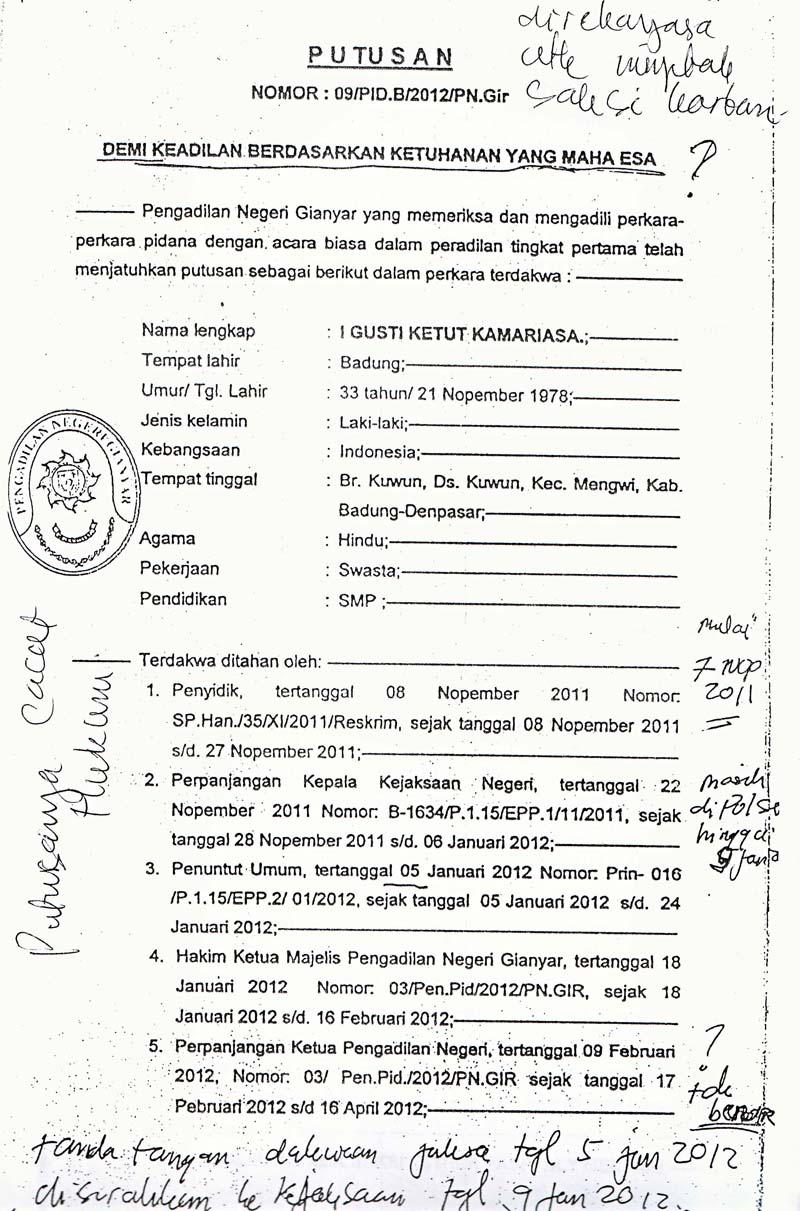 direkayasa
saksi korban
PUTUSAN
NOMOR : 09/PID.B/2012/PN.Gir
DEMI KEADILAN BERDASARKAN KETUHANAN YANG MAHA ESA ?
Pengadilan Negeri Gianyar yang memeriksa dan mengadili perkara-
perkara pidana dengan acara biasa dalam peradilan tingkat pertama telah
menjatuhkan putusan sebagai berikut dalam perkara terdakwa :
Nama lengkap : I GUSTI KETUT KAMARIASA.;
Tempat lahir : Badung;
Umur/ Tgl. Lahir : 33 tahun/ 21 Nopember 1978;
Jenis kelamin : Laki-laki;
Kebangsaan : Indonesia;
Tempat tinggal : Br. Kuwun, Ds. Kuwun, Kec. Mengwi, Kab.
Badung-Denpasar;
Agama : Hindu;
Pekerjaan : Swasta;
Pendidikan : SMP ;
PENGADILAN NEGERI GIANYAR
Putusanya cacat
Hukum
Terdakwa ditahan oleh:
1. Penyidik, tertanggal 08 Nopember 2011 Nomor:
SP.Han./35/XI/2011/Reskrim, sejak tanggal 08 Nopember 2011
s/d. 27 Nopember 2011;
mulai
7 Nop
2011
2. Perpanjangan Kepala Kejaksaan Negeri, tertanggal 22
Nopember 2011 Nomor: B-1634/P.1.15/EPP.1/11/2011, sejak
tanggal 28 Nopember 2011 s/d. 06 Januari 2012;
masih
di Polse
hingga
9 Jan
3. Penuntut Umum, tertanggal 05 Januari 2012 Nomor: Prin- 016
/P.1.15/EPP.2/ 01/2012, sejak tanggal 05 Januari 2012 s/d. 24
Januari 2012;
4. Hakim Ketua Majelis Pengadilan Negeri Gianyar, tertanggal 18
Januari 2012 Nomor: 03/Pen.Pid/2012/PN.GIR, sejak 18
Januari 2012 s/d. 16 Februari 2012;
5. Perpanjangan Ketua Pengadilan Negeri, tertanggal 09 Februari
2012, Nomor: 03/ Pen.Pid./2012/PN.GIR sejak tanggal 17
Pebruari 2012 s/d 16 April 2012;
?
tdk
benar
tanda tangan dakwaan jaksa tgl 5 jan 2012
diserahkan ke Kejaksaan tgl 9 Jan 2012.